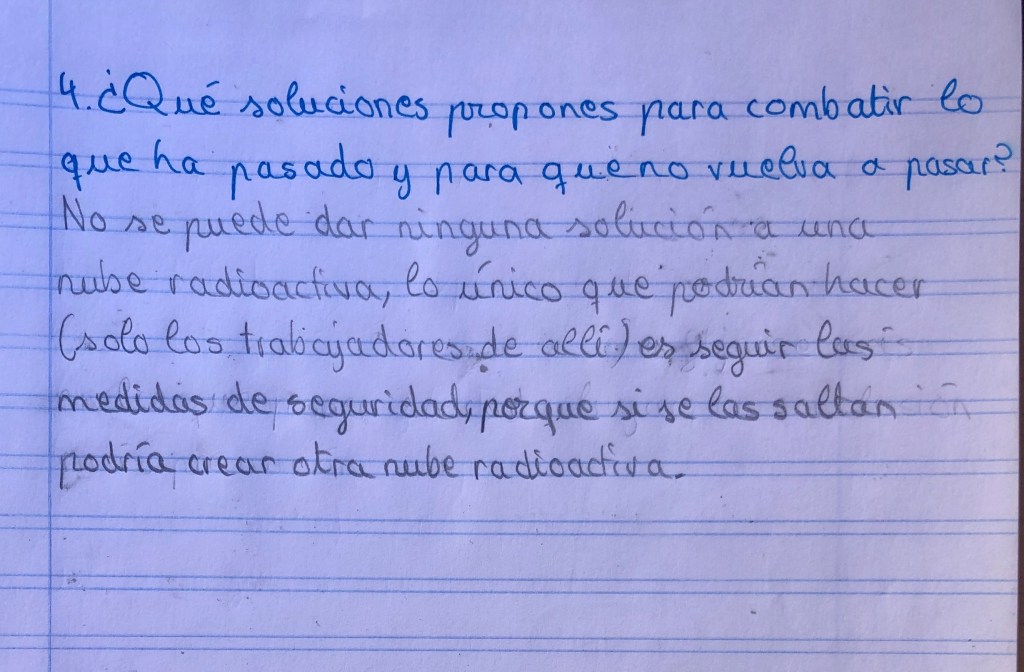 4. ¿Qué soluciones propones para combatir lo
que ha pasado y para que no vuelva a pasar?
No se puede dar ninguna solución a una
nube radioactiva, lo único que podrían hacer
(solo los trabajadores de allí) es seguir las
medidas de seguridad, porque si se las saltan
podría crear otra nube radioactiva.